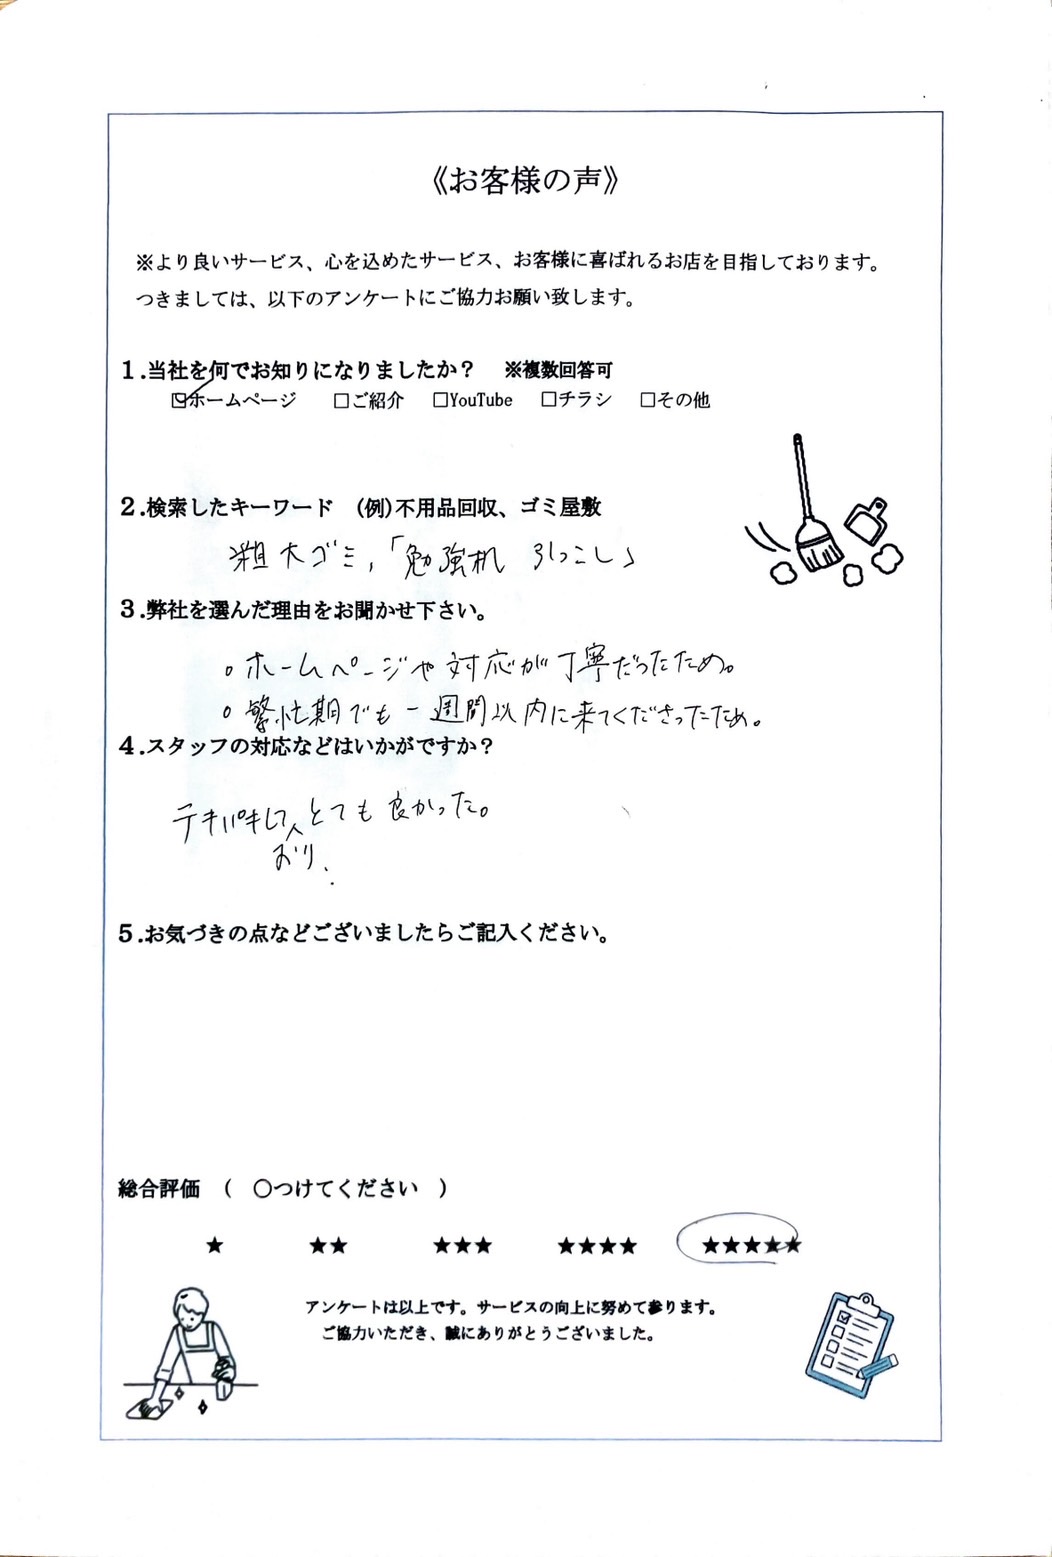 《お客様の声》
※より良いサービス、心を込めたサービス、お客様に喜ばれるお店を目指しております。
つきましては、以下のアンケートにご協力お願い致します。
1.当社を何でお知りになりましたか？　※複数回答可
☑ホームページ　□ご紹介　□YouTube　□チラシ　□その他
2.検索したキーワード　(例)不用品回収、ゴミ屋敷
粗大ゴミ,「勉強机　引っこし」
3.弊社を選んだ理由をお聞かせ下さい。
。ホームページや対応が丁寧だったため。
。繁忙期でも一週間以内に来てくださったため。
4.スタッフの対応などはいかがですか？
テキパキしてとても良かった。
おり、
5.お気づきの点などございましたらご記入ください。
総合評価　(　〇つけてください　)
★　★★　★★★　★★★★　★★★★★
アンケートは以上です。サービスの向上に努めて参ります。
ご協力いただき、誠にありがとうございました。